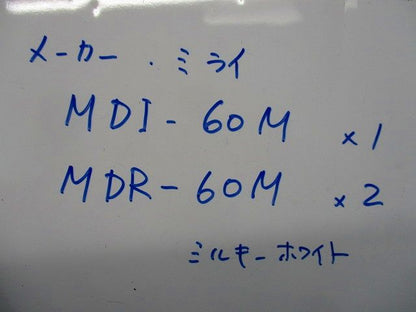 メーカー ・ ミライ
MDI-60M ×1
MDR-60M ×2
ミルキーホワイト